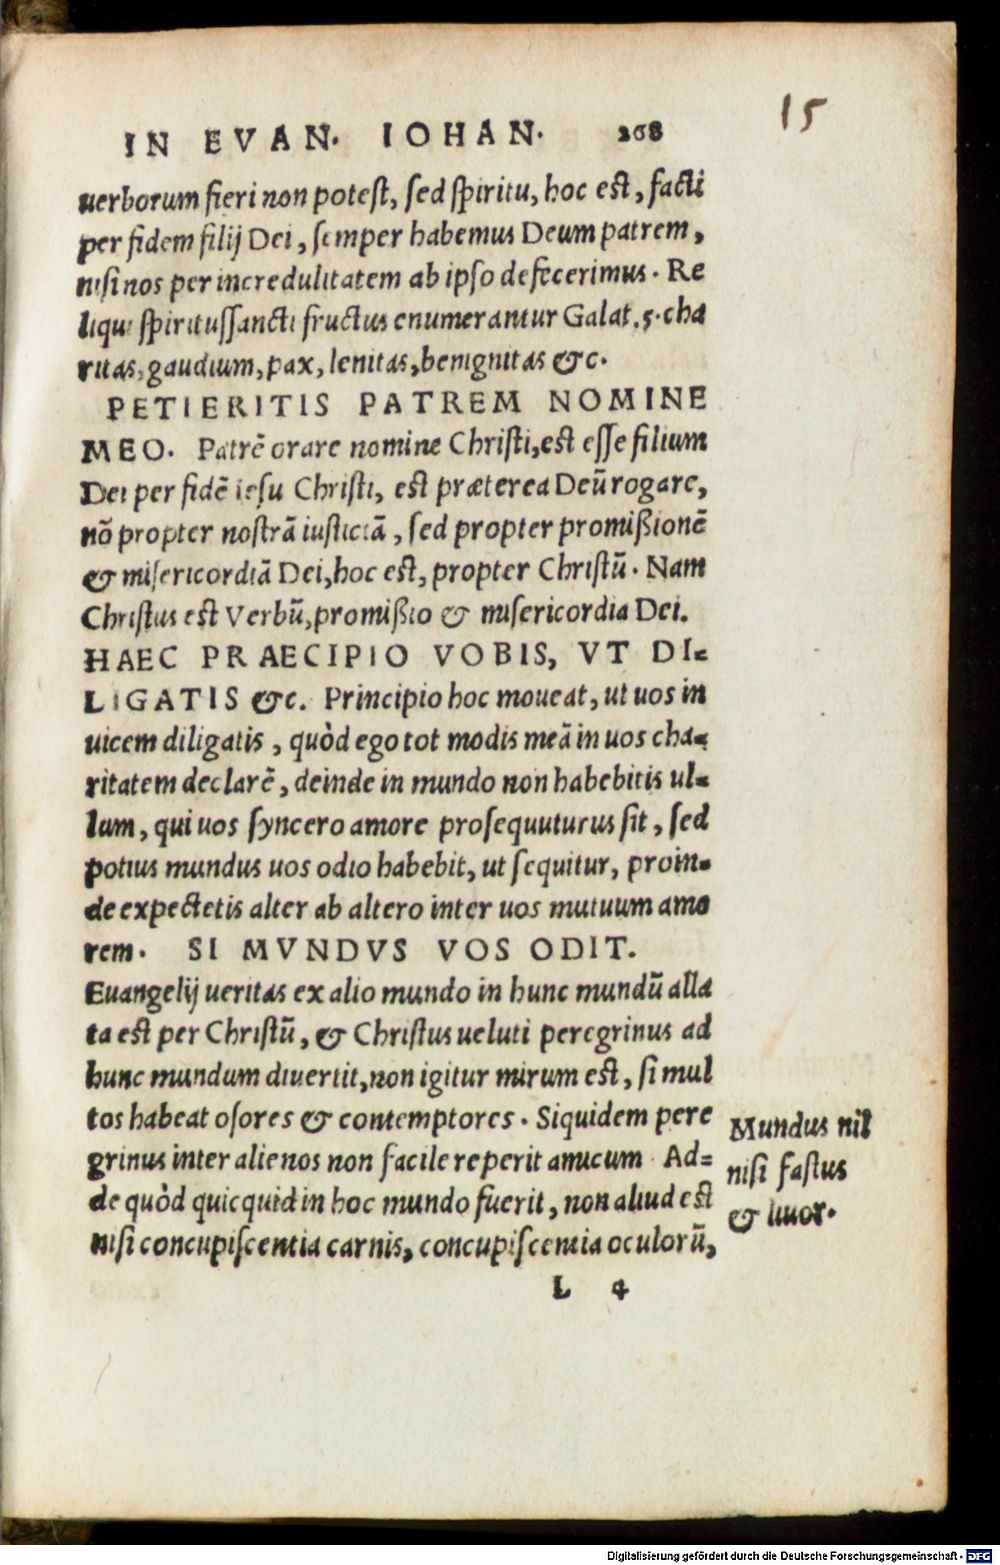 15
IN EVAN. IOHAN. 268
uerborum fieri non potest, sed spiritu, hoc est, facti
per fidem filij Dei, semper habemus Deum patrem,
nisi nos per incredulitatem ab ipso defecerimus. Re
liqui spiritussancti fructus enumerantur Galat. 5. cha
ritas, gaudium, pax, lenitas, benignitas &c.
PETIERITIS PATREM NOMINE
MEO. Patrē orare nomine Christi, est esse filium
Dei per fidē iesu Christi, est præterea Deū rogare,
nō propter nostrā iusticiā, sed propter promißionē
& misericordiā Dei, hoc est, propter Christū. Nam
Christus est Verbū, promißio & misericordia Dei.
HAEC PRAECIPIO VOBIS, VT DI=
LIGATIS &c. Principio hoc moueat, ut uos in
uicem diligatis, quòd ego tot modis meā in uos cha=
ritatem declarē, deinde in mundo non habebitis ul=
lum, qui uos syncero amore prosequuturus sit, sed
potius mundus uos odio habebit, ut sequitur, proin=
de expectetis alter ab altero inter uos mutuum amo
rem. SI MVNDVS VOS ODIT.
Euangelij ueritas ex alio mundo in hunc mundū alla
ta est per Christū, & Christus ueluti peregrinus ad
hunc mundum diuertit, non igitur mirum est, si mul
tos habeat osores & contemptores. Siquidem pere
grinus inter alienos non facile reperit amicum Ad=
de quòd quicquid in hoc mundo fuerit, non aliud est
nisi concupiscentia carnis, concupiscentia oculorū,
Mundus nil
nisi fastus
& liuor.
L 4
Digitalisierung gefördert durch die Deutsche Forschungsgemeinschaft - DFG